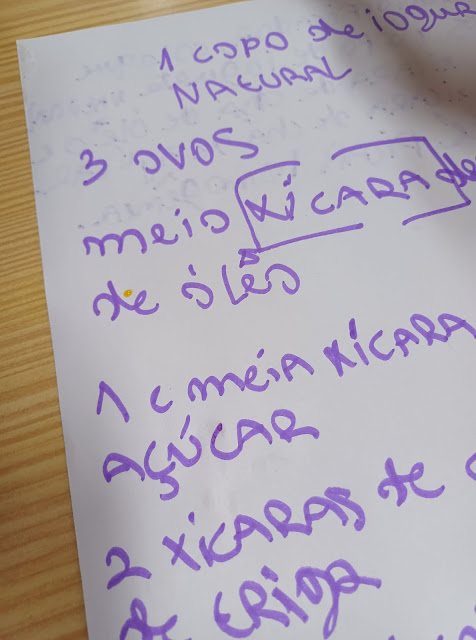 1 COPO de iogur
NATURAL
3 OVOS
meio XÍCARA de
de óLEO
1 e meiA XÍCARA
AÇÚCAR
2 XÍCARAS de
de tRigo